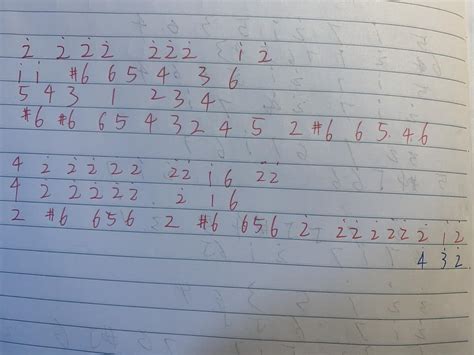 2̇ 2̇ 2̇ 2̇ 2̇ 2̇ 2̇ 1̇ 2̇
1̇ 1̇ #6 6 5 4 3 6
5 4 3 1 2 3 4
#6 #6 6 5 4 3 2 4 5 2 #6 6 5. 4 6
4 2̇ 2̇ 2̇ 2̇ 2̇ 2̇ 2̇ 1̇ 6 2̇ 2̇
4 2̇ 2̇ 2̇ 2̇ 2̇ 2̇ 1̇ 6
2 #6 6 5 6 2 #6 6 5 6 2̇ 2̇ 2̇ 2̇ 2̇ 2̇ 2̇ 1̇ 2̇
4̇ 3̇ 2̇